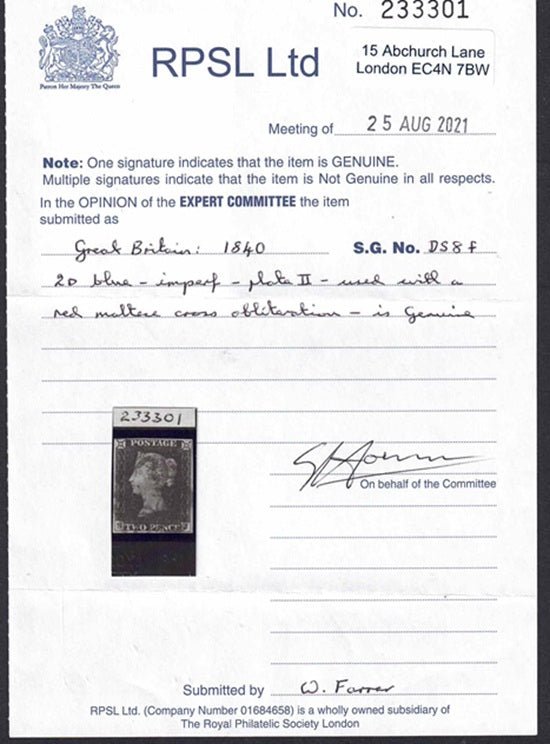 No. 233301
Patron Her Majesty The Queen
RPSL Ltd
15 Abchurch Lane
London EC4N 7BW
Meeting of 25 AUG 2021
Note: One signature indicates that the item is GENUINE.
Multiple signatures indicate that the item is Not Genuine in all respects.
In the OPINION of the EXPERT COMMITTEE the item
submitted as
Great Britain: 1840 S.G. No. DS8f
2D blue - imperf - plate II - used with a
red maltese cross obliteration - is Genuine
233301
POSTAGE
TWO PENCE
On behalf of the Committee
Submitted by W. Farrer
RPSL Ltd. (Company Number 01684658) is a wholly owned subsidiary of
The Royal Philatelic Society London